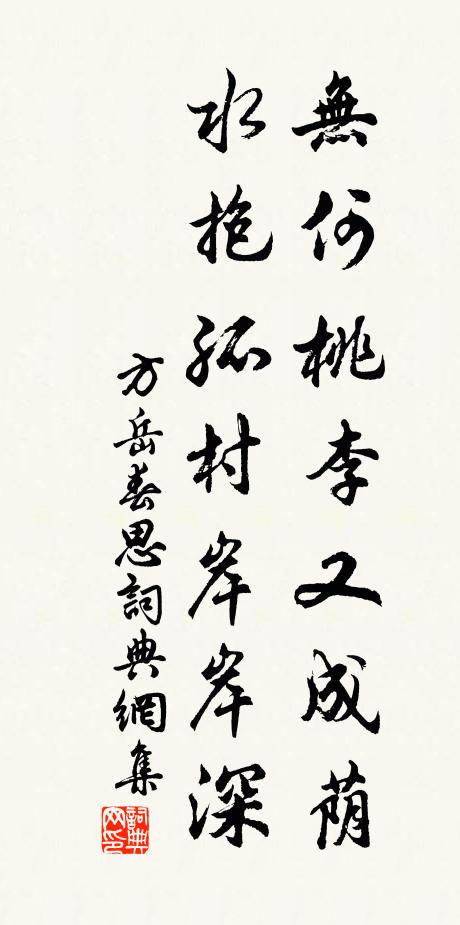 無何桃李又成荫
水抱孤村岸岸深
方岳春思詞典網集
詞典网印